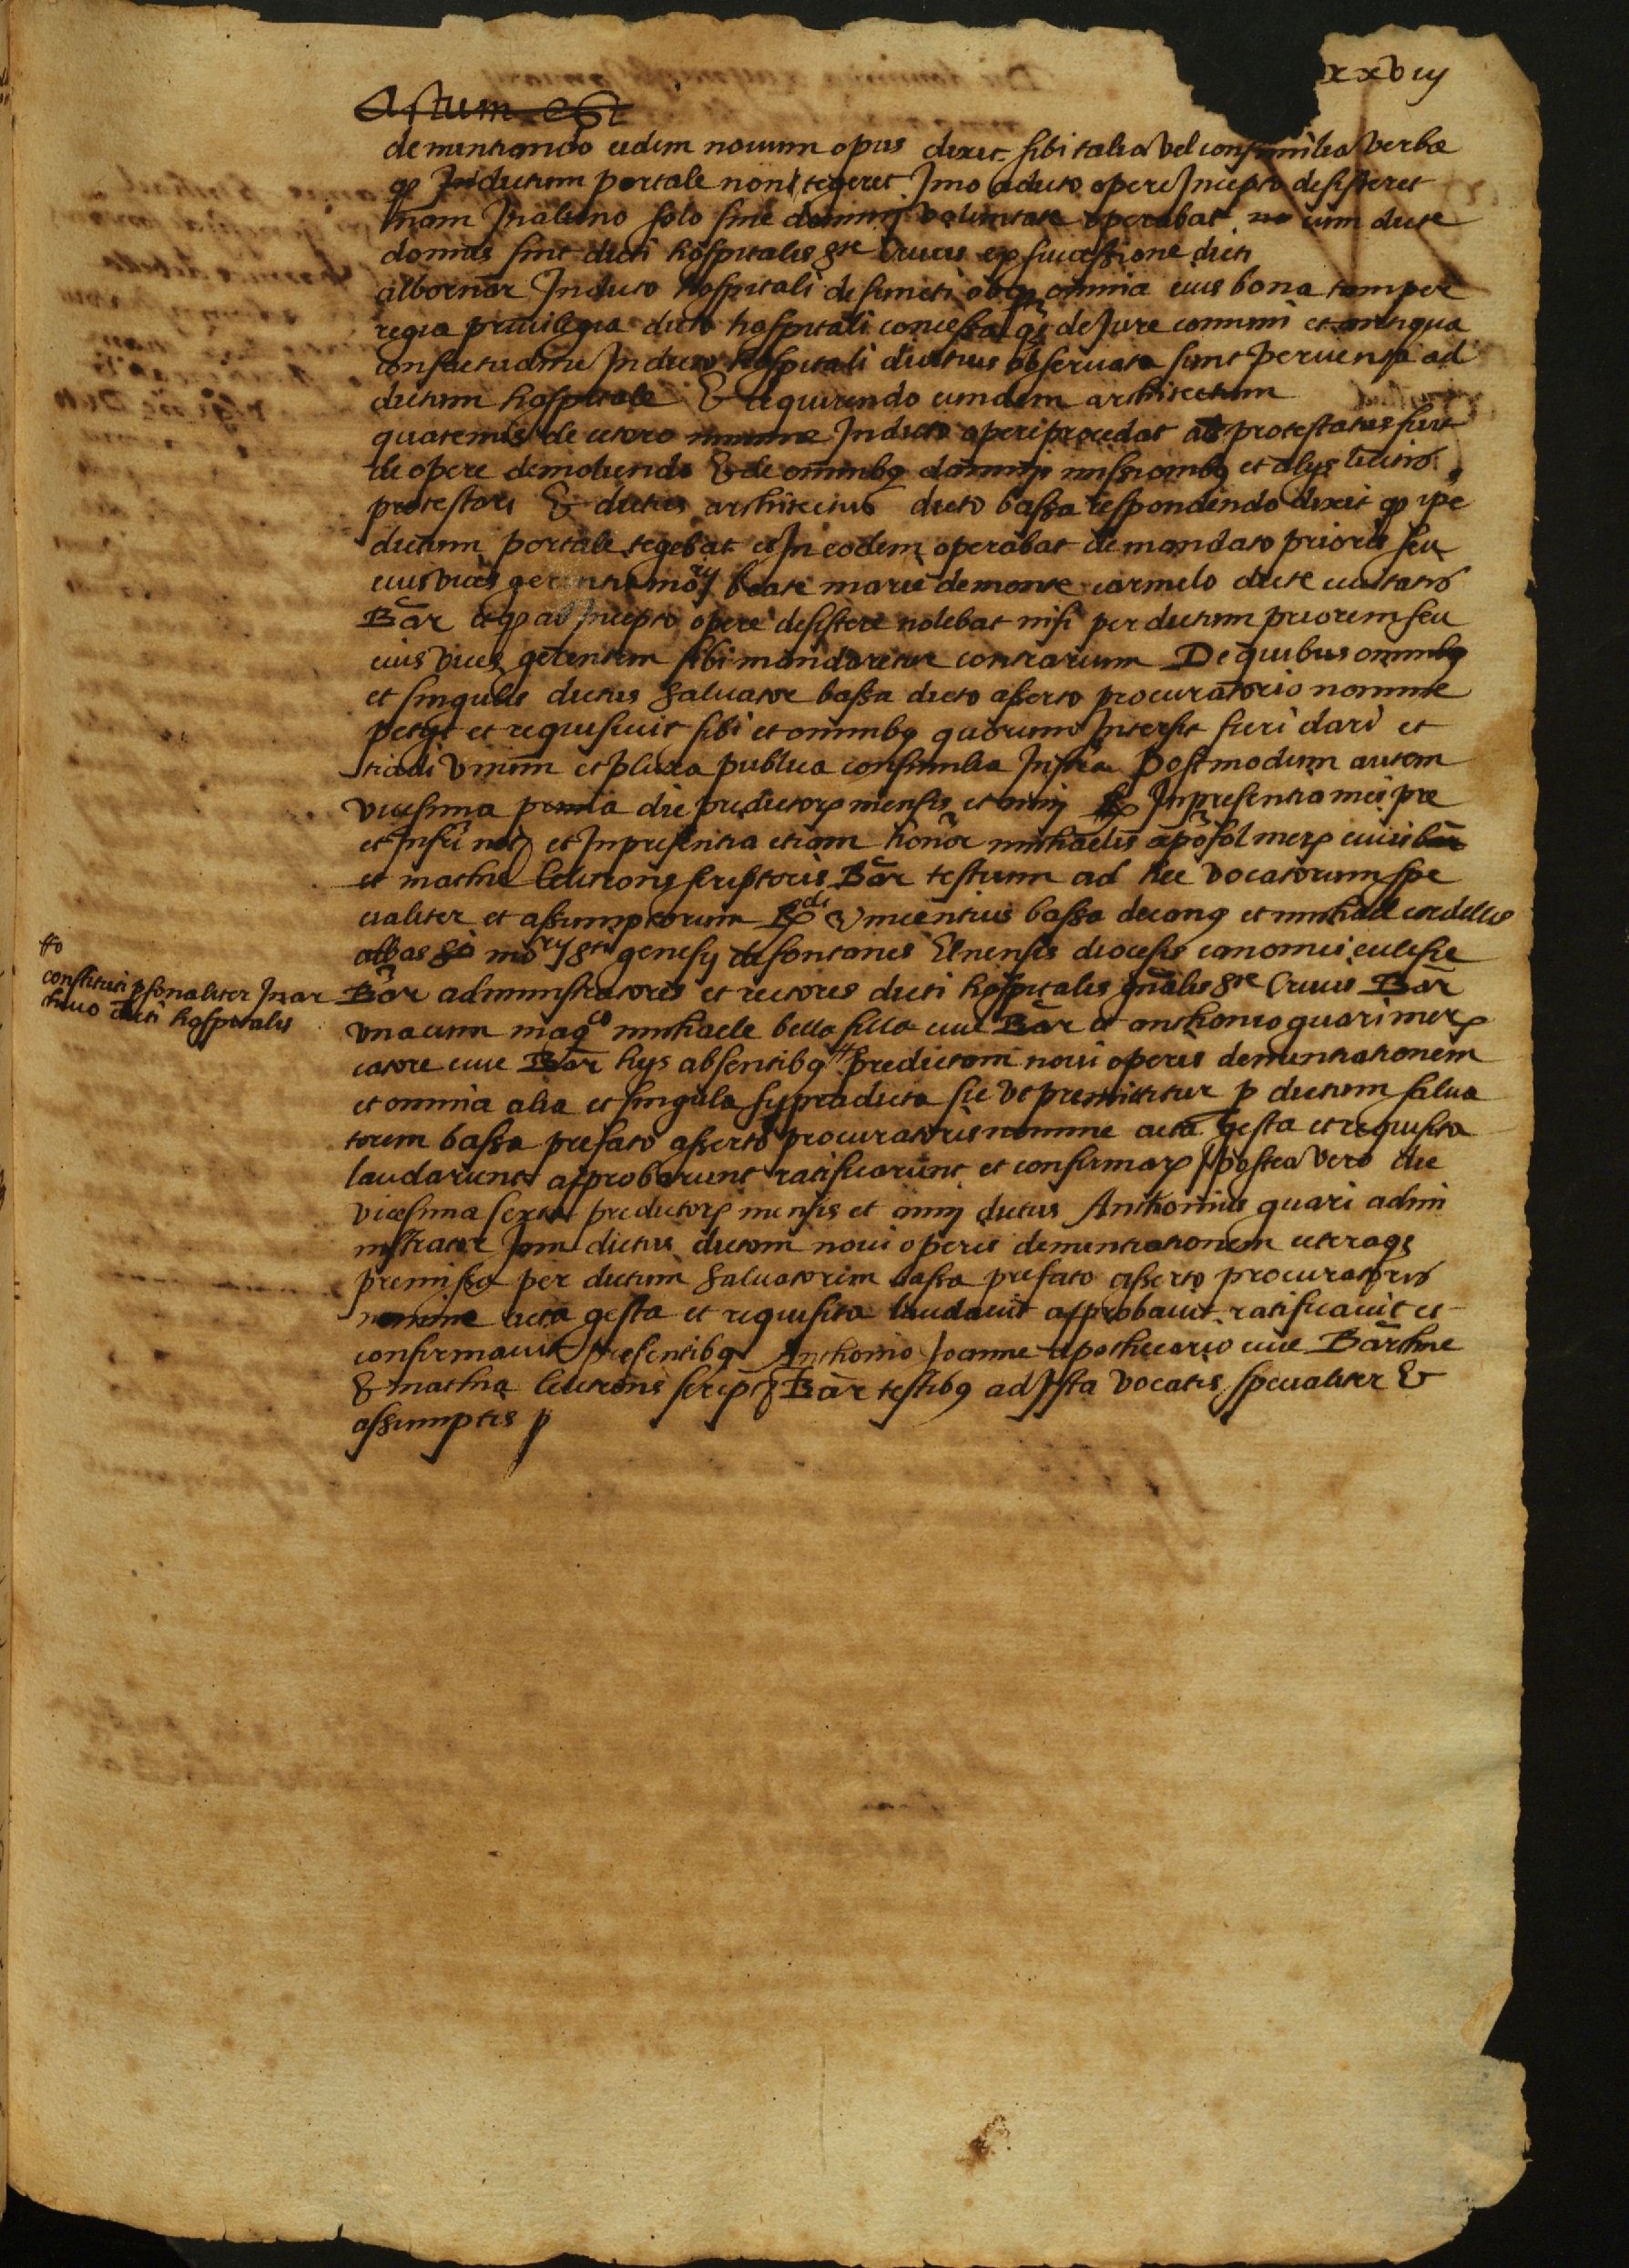 xxviij
Actum est
denuntiando eidem nouum opus dixit sibi talia vel consimilia verba
q Indictum portale non tegeret Jmo a dicto opere Jncepto desisteret
nam Jn alieno solo sine dominj voluntate operabat cum dicte
domus sint dicti hospitalis ste Crucis ex successione dicti
albornar Jn dicto hospitali defuncti omnia eius bona tam per
regia priuilegia dicto hospitali concessa q de Jure comuni et antiqua
consuetudine Jn dicto hospitali diutius obseruata sunt peruenta ad
dictum hospitale & requirendo eumdem architectum
quatenus de cetero Jn dicto operi procedat als protestatus fuit
de opere demoliendo & de omnibq damnis missionibq et alijs licitis
protestari & dictus architectus dicto bassa respondendo dixit q ipe
dictum portale tegebat et Jn eodem operabat de mandato prioris seu
eius vices gerentis mory beate marie de monte carmelo dicte ciuitatis
Bar et q ab Jncepto opere desistere nolebat nisi per dictum priorem seu
eius vices gerentem sibi mandaretur contrarium De quibus omnibq
et singulis dictus saluator bassa dicto asserto procuratorio nomine
petijt et requisiuit sibi et omnibq quorum Jntersit fieri dari et
tradi vnum et plura publica consimilia Jnstra Postmodum autem
vicesima prima die predictorp mensis et anni Jn presentia mei pre
et Jnfri not et Jn presentia etiam honor michaelis aposol merp ciuis bar
et mathie lecirons scriptoris Bar testium ad hec vocatorum spe
cialiter et assumptorum Rdi vincentius bassa decanq et michael cordelles
abbas mory sti genesij de fontanes Elnensis diocesis canonici ecclesie
Bar administratores et rectores dicti hospitalis gnalis ste Crucis Bar
vna cum magco michaele bella filla ciue Bar et anthonio quari merp
catore ciue Bar hijs absentibq # predictam noui operis denuntiationem
et omnia alia et singula supradicta sic vt premittitur p dictum salua
torem bassa prefato asserto procuratorio nomine acta gesta et requisita
laudarunt approbarunt ratificarunt et confirmarp postea vero die
vicesima sexta predictorp mensis et anni dictus Anthonius quari admi
nistrator Jam dictus dictam noui operis denuntiationem ceteraqe
premissa per dictum saluatorem bassa prefato asserto procuratorio
nomine acta gesta et requisita laudauit approbauit ratificauit et
confirmauit presentibq Anthonio Joanne apothecario ciue Barchne
& mathia lecirons scrip Bar testibq ad Jsta vocatis specialiter &
assumptis p
#o
constituti psonaliter Jn ar
chiuo dicti hospitalis